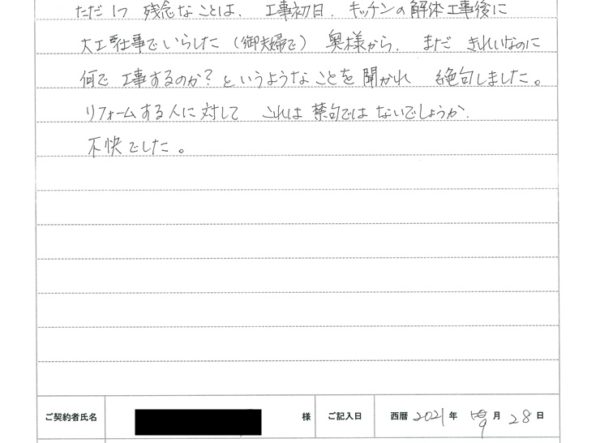 ただ1つ 残念なことは、工事初日、キッチンの解体工事後に
大工仕事でいらした(御夫婦で)奥様から、まだ きれいなのに
何で 工事するのか?というようなことを聞かれ 絶句しました。
リフォームする人に対して これは 禁句では ないでしょうか。
不快でした。
ご契約者氏名 様 ご記入日 西暦 2021 年 9 月 28 日